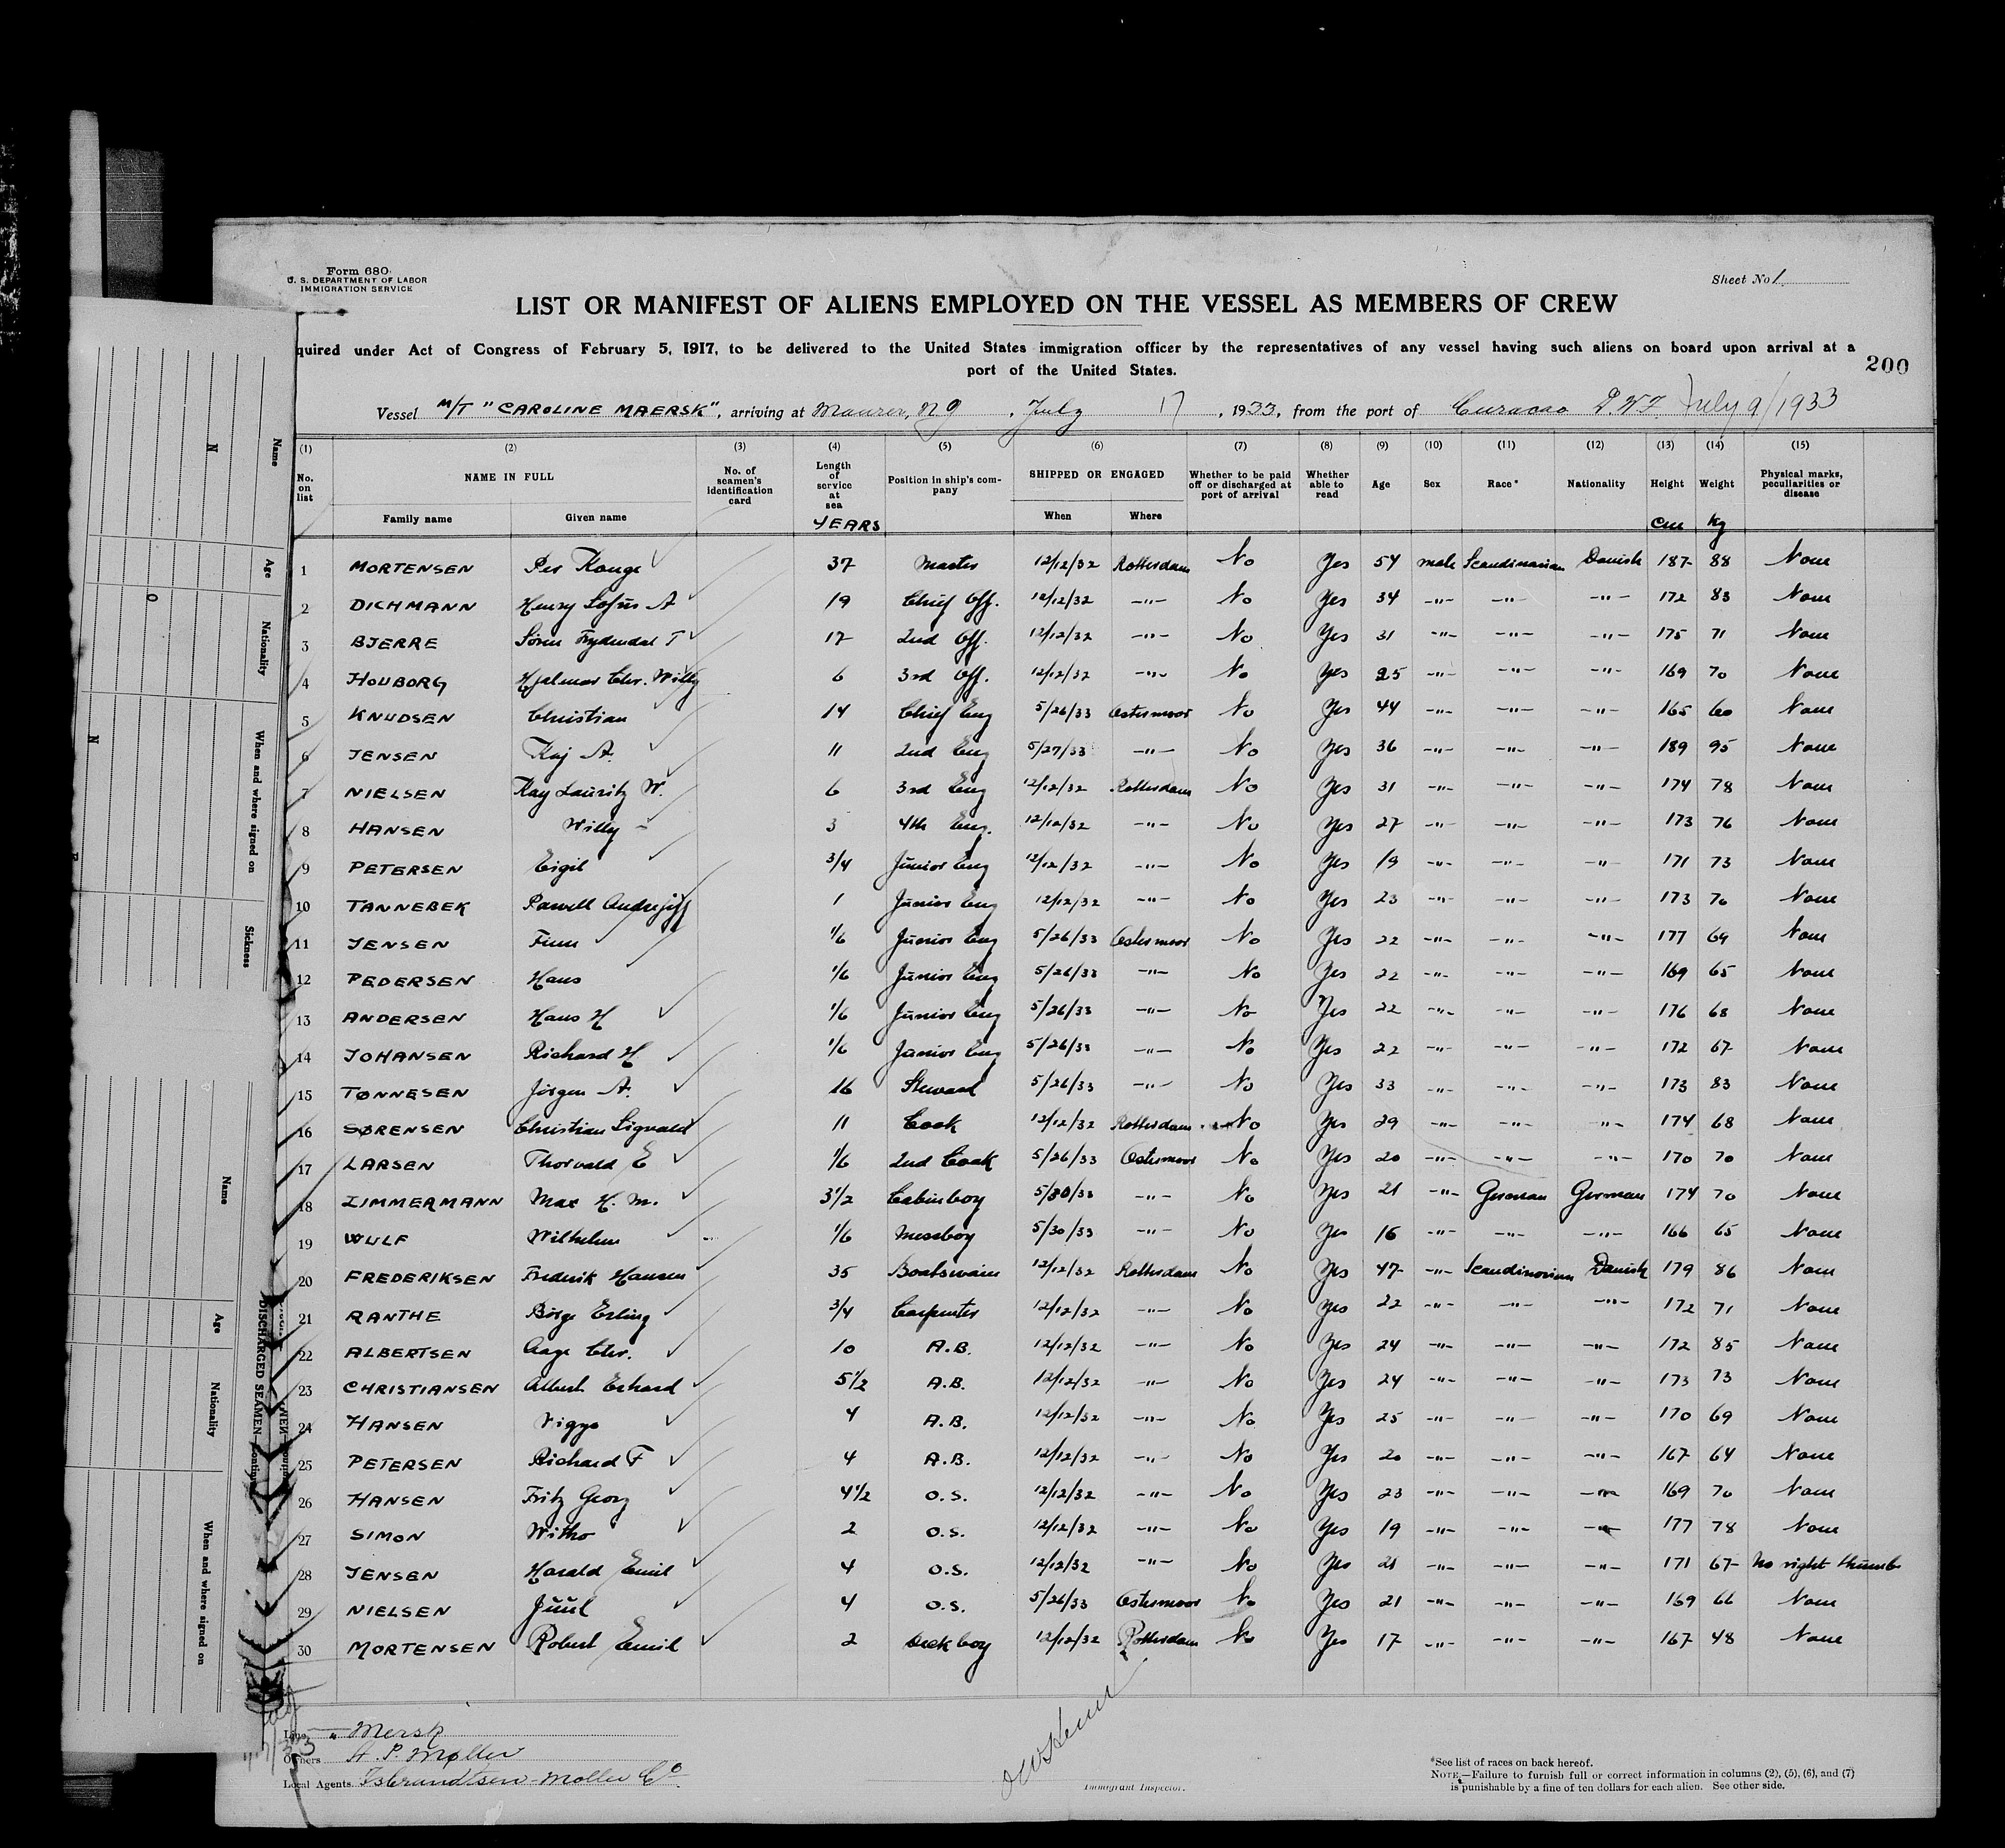 Form 680
U. S. DEPARTMENT OF LABOR
IMMIGRATION SERVICE
Sheet No 1
LIST OR MANIFEST OF ALIENS EMPLOYED ON THE VESSEL AS MEMBERS OF CREW
quired under Act of Congress of February 5, 1917, to be delivered to the United States immigration officer by the representatives of any vessel having such aliens on board upon arrival at a
port of the United States.
200
Vessel M/T "CAROLINE MAERSK", arriving at Maurer, NJ, July 17, 1933, from the port of Curacao D.W.I. July 9/1933
(1) (2) (3) (4) (5) (6) (7) (8) (9) (10) (11) (12) (13) (14) (15)
No. on list NAME IN FULL No. of seamen's identification card Length of service at sea Position in ship's company SHIPPED OR ENGAGED Whether to be paid off or discharged at port of arrival Whether able to read Age Sex Race* Nationality Height Weight Physical marks, peculiarities or disease
Family name Given name YEARS When Where cm kg
1 MORTENSEN Per Kouge 37 Master 12/12/32 Rotterdam No Yes 54 male Scandinavian Danish 187 88 None
2 DICHMANN Henry Lofus A 19 Chief Off. 12/12/32 -"- No Yes 34 -"- -"- -"- 172 83 None
3 BJERRE Sören Frydendal T 17 2nd Off. 12/12/32 -"- No Yes 31 -"- -"- -"- 175 71 None
4 HOUBORG Hjalmar Chr. Willy 6 3rd Off. 12/12/32 -"- No Yes 25 -"- -"- -"- 169 70 None
5 KNUDSEN Christian 14 Chief Eng 5/26/33 Ostermoor No Yes 44 -"- -"- -"- 165 60 None
6 JENSEN Kaj A. 11 2nd Eng 5/27/33 -"- No Yes 36 -"- -"- -"- 189 95 None
7 NIELSEN Kay Lauritz W. 6 3rd Eng 12/12/32 Rotterdam No Yes 31 -"- -"- -"- 174 78 None
8 HANSEN Willy - 3 4th Eng. 12/12/32 -"- No Yes 27 -"- -"- -"- 173 76 None
9 PETERSEN Eigil 3/4 Junior Eng 12/12/32 -"- No Yes 19 -"- -"- -"- 171 73 None
10 TANNEBEK Pawell 1 Junior Eng 12/12/32 -"- No Yes 23 -"- -"- -"- 173 70 None
11 JENSEN Finn 1/6 Junior Eng 5/26/33 Ostermoor No Yes 22 -"- -"- -"- 177 69 None
12 PEDERSEN Hans 1/6 Junior Eng 5/26/33 -"- No Yes 22 -"- -"- -"- 169 65 None
13 ANDERSEN Hans H 1/6 Junior Eng 5/26/33 -"- No Yes 22 -"- -"- -"- 176 68 None
14 JOHANSEN Richard H 1/6 Junior Eng 5/26/33 -"- No Yes 22 -"- -"- -"- 172 67 None
15 TØNNESEN Jörgen A. 16 Steward 5/26/33 -"- No Yes 33 -"- -"- -"- 173 83 None
16 SØRENSEN Christian Sigvald 11 Cook 12/12/32 Rotterdam No Yes 29 -"- -"- -"- 174 68 None
17 LARSEN Thorvald E 1/6 2nd Cook 5/26/33 Ostermoor No Yes 20 -"- -"- -"- 170 70 None
18 ZIMMERMANN Max H. M. 3 1/2 Cabinboy 5/30/33 -"- No Yes 21 -"- German German 174 70 None
19 WULF Wilhelm 1/6 Messboy 5/30/33 -"- No Yes 16 -"- -"- -"- 166 65 None
20 FREDERIKSEN Frederik Hansen 35 Boatswain 12/12/32 Rotterdam No Yes 47 -"- Scandinavian Danish 179 86 None
21 RANTHE Börge Erling 3/4 Carpenter 12/12/32 -"- No Yes 22 -"- -"- -"- 172 71 None
22 ALBERTSEN Aage Chr. 10 A.B. 12/12/32 -"- No Yes 24 -"- -"- -"- 172 85 None
23 CHRISTIANSEN Albert Erhard 5 1/2 A.B. 12/12/32 -"- No Yes 24 -"- -"- -"- 173 73 None
24 HANSEN Viggo 4 A.B. 12/12/32 -"- No Yes 25 -"- -"- -"- 170 69 None
25 PETERSEN Richard F 4 A.B. 12/12/32 -"- No Yes 20 -"- -"- -"- 167 64 None
26 HANSEN Fritz Georg 4 1/2 O.S. 12/12/32 -"- No Yes 23 -"- -"- -"- 169 70 None
27 SIMON Witho 2 O.S. 12/12/32 -"- No Yes 19 -"- -"- -"- 177 78 None
28 JENSEN Harald Emil 4 O.S. 12/12/32 -"- No Yes 21 -"- -"- -"- 171 67 No right thumb
29 NIELSEN Juul 4 O.S. 5/26/33 Ostermoor No Yes 21 -"- -"- -"- 169 66 None
30 MORTENSEN Robert Emil 2 Deckboy 12/12/32 Rotterdam No Yes 17 -"- -"- -"- 167 48 None
Line " Mersk
Owners A. P. Møller
Local Agents Isbrandtsen-Moller Co.
Immigrant Inspector.
*See list of races on back hereof.
NOTE.—Failure to furnish full or correct information in columns (2), (5), (6), and (7)
is punishable by a fine of ten dollars for each alien. See other side.
Name
Age
Nationality
When and where signed on
Sickness
Name
Age
Nationality
When and where signed on
DISCHARGED SEAMEN